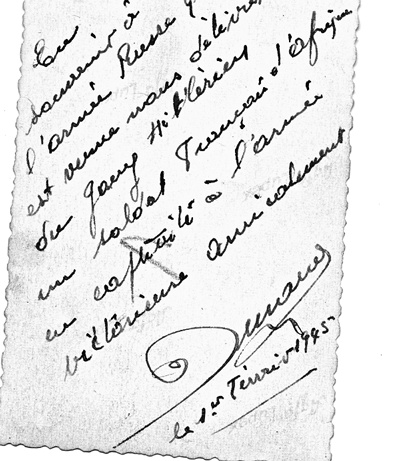 En
souvenir à
l'armée Russe q
est venue nous délivre
du gang Hitlérien
un soldat Français d'afrique
en captivité à l'armée
victorieuse amicalement
le 1er Février 1945